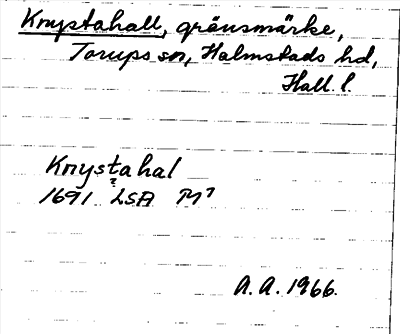 Knystahall, gränsmärke,
Torups sn, Halmstads hd,
Hall. l.
Knystahal
?
1691 LSA M7
A.A. 1966.